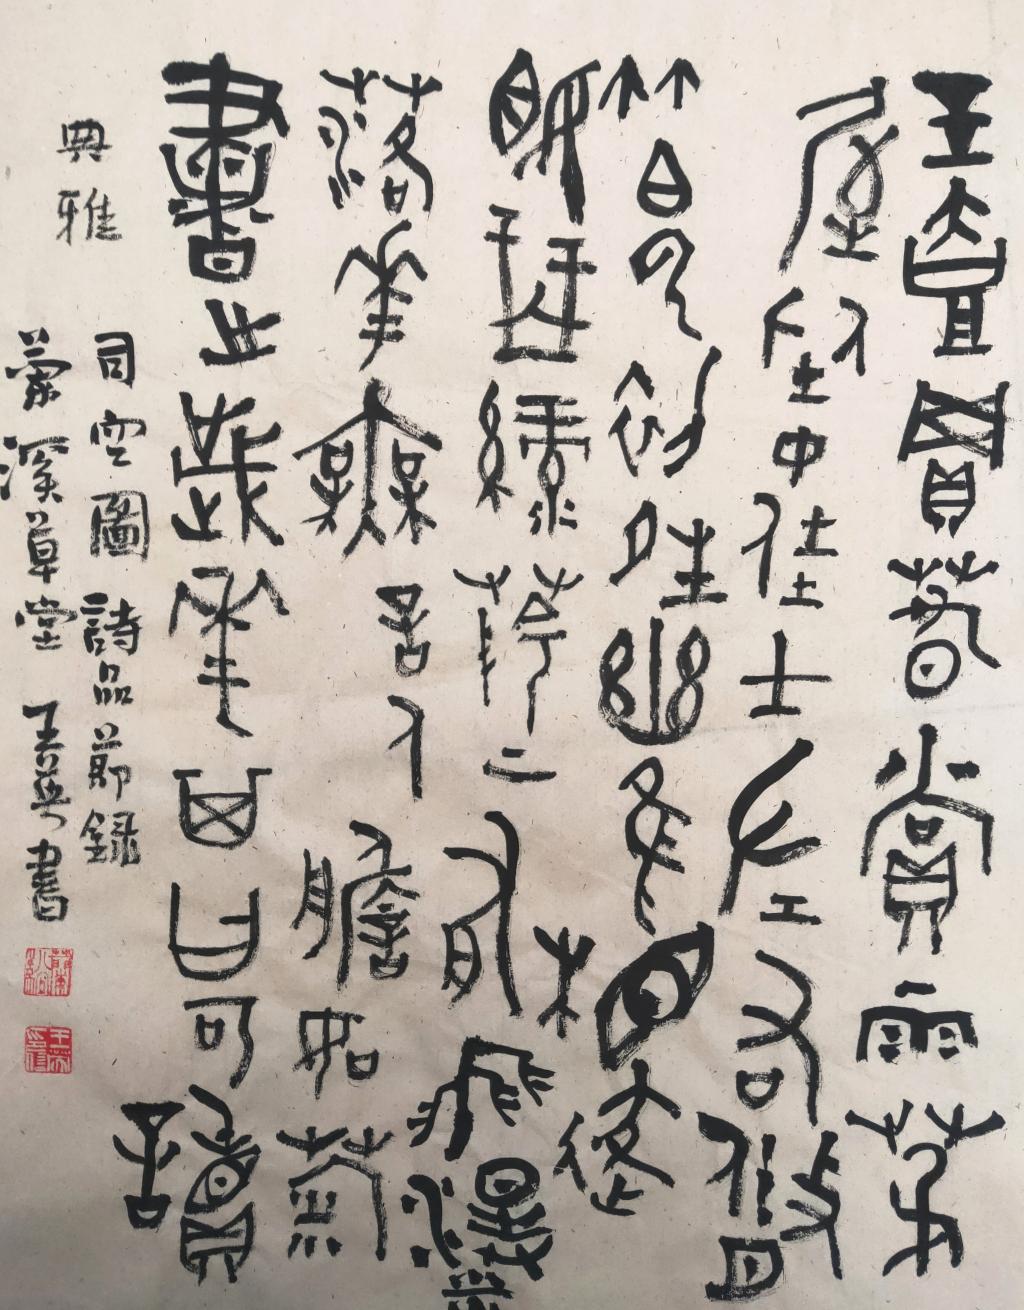 玉壺買春賞雨茅
屋坐中佳士左右脩
竹白雲初晴幽鳥相逐
眠琴綠陰上有飛瀑
落華無言人澹如蘜
書之歲華其曰可讀
典雅
司空圖詩品節録
蒙溪草堂王書